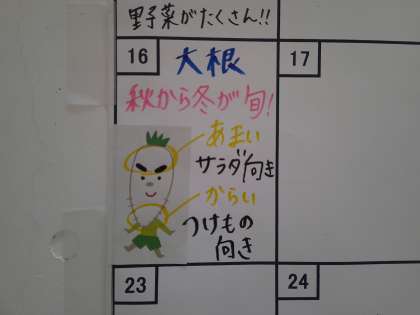 野菜がたくさん!!
16
大根
17
秋から冬が旬!
あまい
サラダ向き
からい
つけもの
向き
23
24